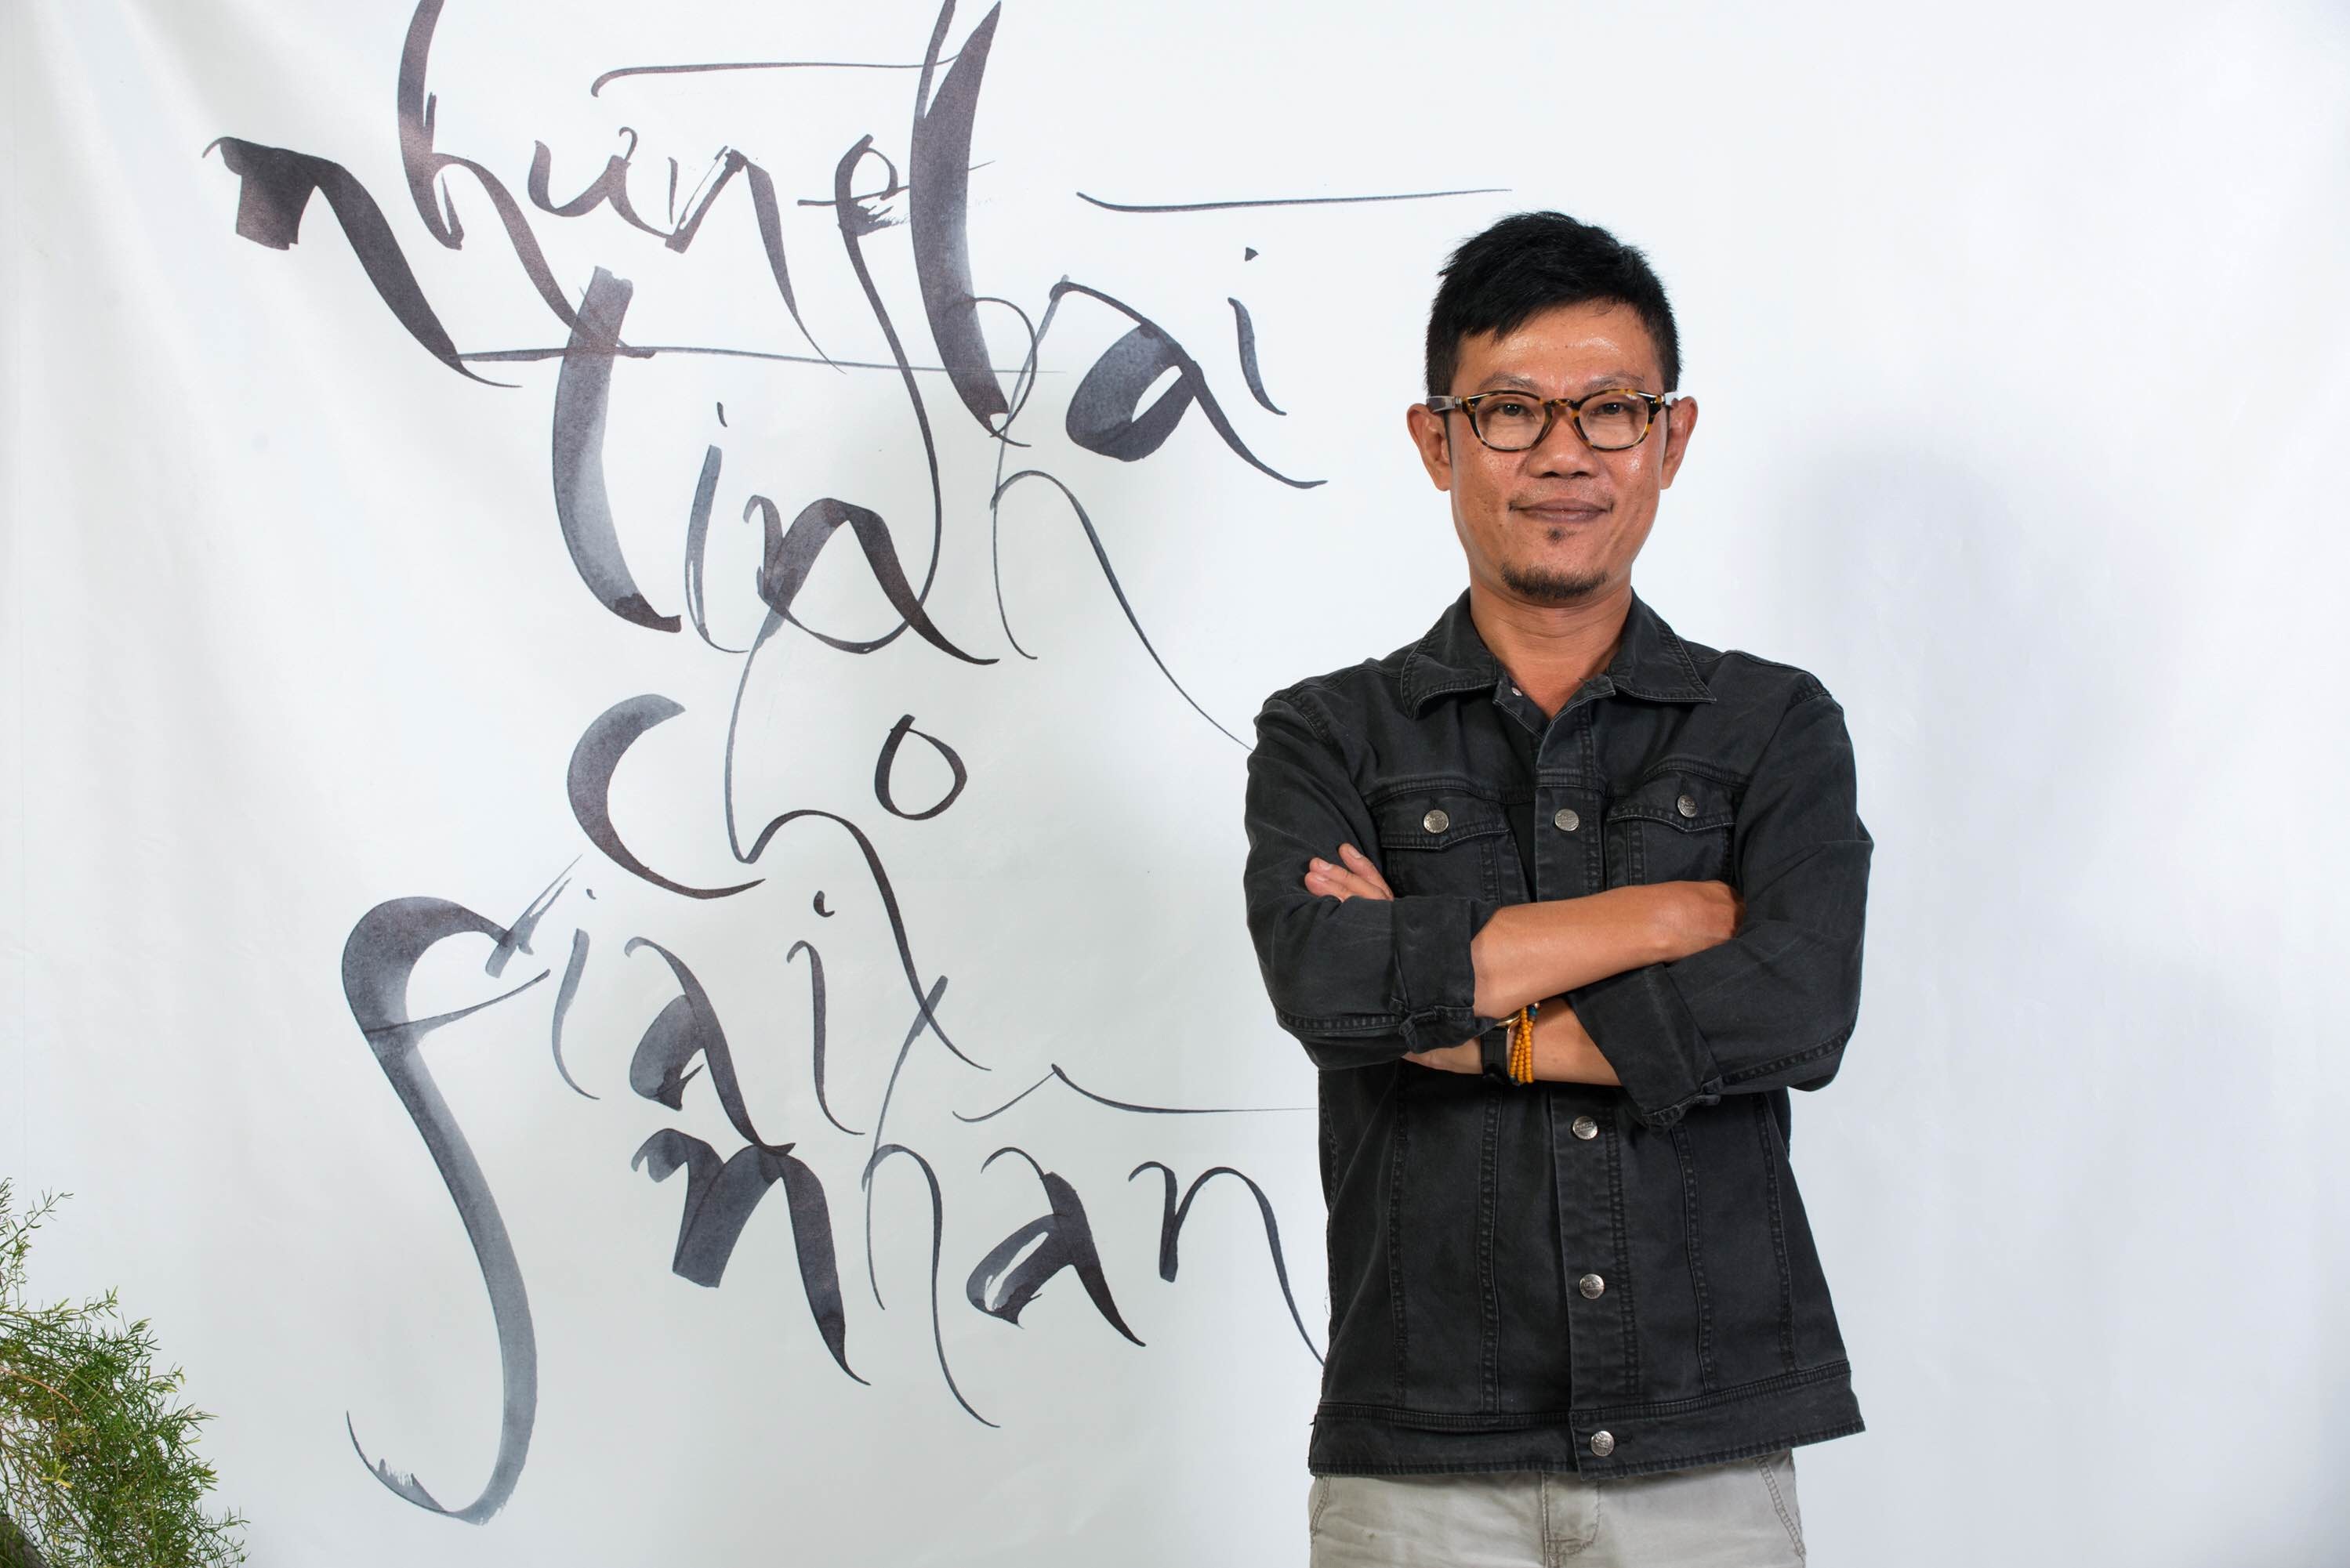 những bài
tình
cho
giai
nhân